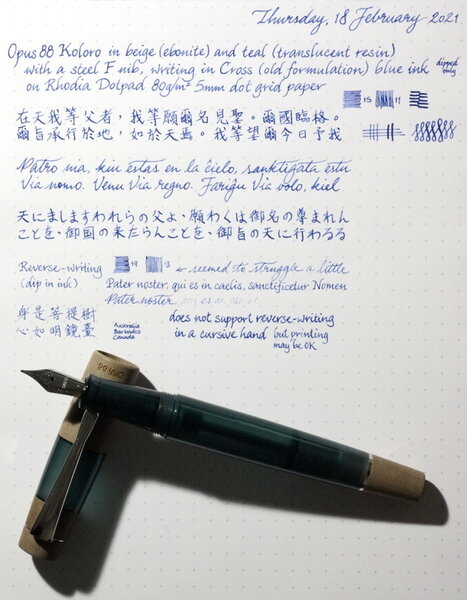 Thursday, 18 February 2021
Opus 88 Koloro in beige (ebonite) and teal (translucent resin)
with a steel F nib, writing in Cross (old formulation) blue ink dipped only
on Rhodia Dotpad 80g/m² 5mm dot grid paper
在天我等父者，我等願爾名見聖。爾國臨格。
爾旨承行於地，如於天焉。我等望爾今日予我
Patro nia, kiu estas en la ĉielo, sanktigata estu
Via nomo. Venu Via regno. Fariĝu Via volo, kiel
天にましますわれらの父よ、願わくは御名の尊まれん
ことを、御国の来たらんことを、御旨の天に行わるる
Reverse-writing
(dip in ink)
← seemed to struggle a little
Pater noster, qui es in caelis, sanctificetur Nomen
Pater noster
身是菩提樹
心如明鏡臺
Australia
Barbados
Canada
does not support reverse-writing
in a cursive hand but printing
may be OK